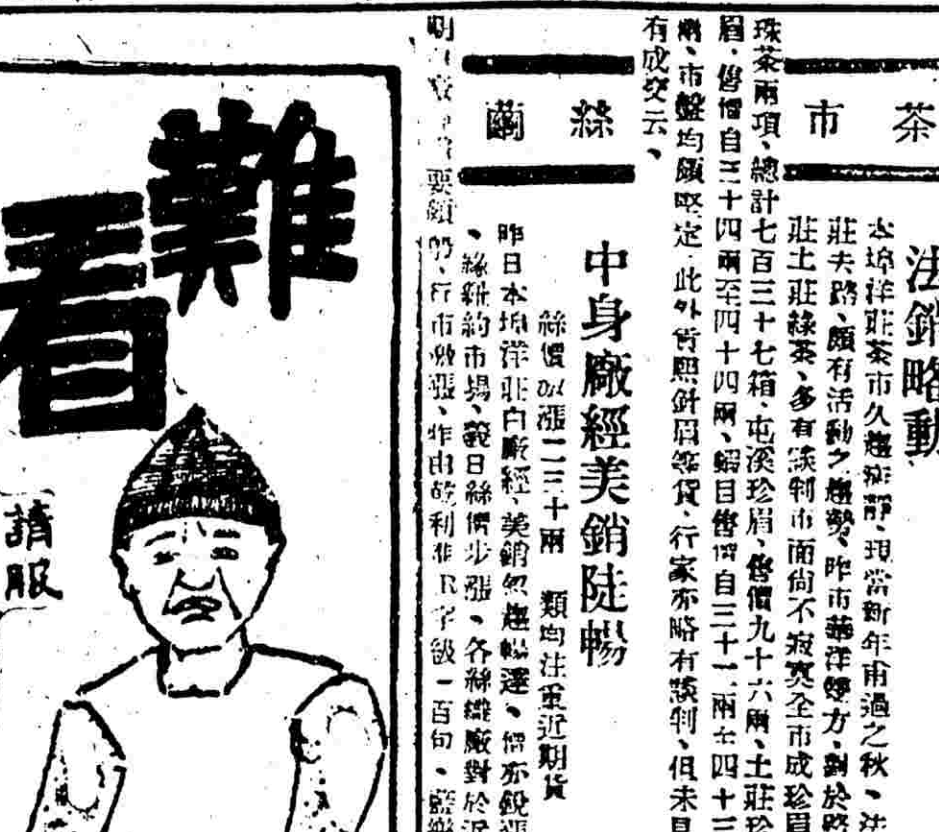 茶市
法銷略動
本埠洋莊茶市久趨寂靜、現當新年甫過之秋、法
莊夫路、頗有活動之趨勢、昨市華洋雙方、對於路
莊土莊綠茶、多有談判市面尚不寂寞全市成珍眉
珠茶兩項、總計七百三十七箱、屯溪珍眉、售價九十六兩、土莊珍
眉、售價自三十四兩至四十四兩、蝦目售價自三十一兩至四十三
兩、市盤均頗堅定、此外貢熙針眉等貨、行家亦略有談判、但未見
有成交云、
絲繭
中身廠經美銷陡暢
絲價加漲二三十兩 類均注重近期貨
昨日本埠洋莊白廠經、美銷忽趨暢達、價亦銳漲
、緣紐約市場、日絲價步漲、各絲織廠對於
要額 行市激漲、昨由乾利 字級一百包、
難看
請服